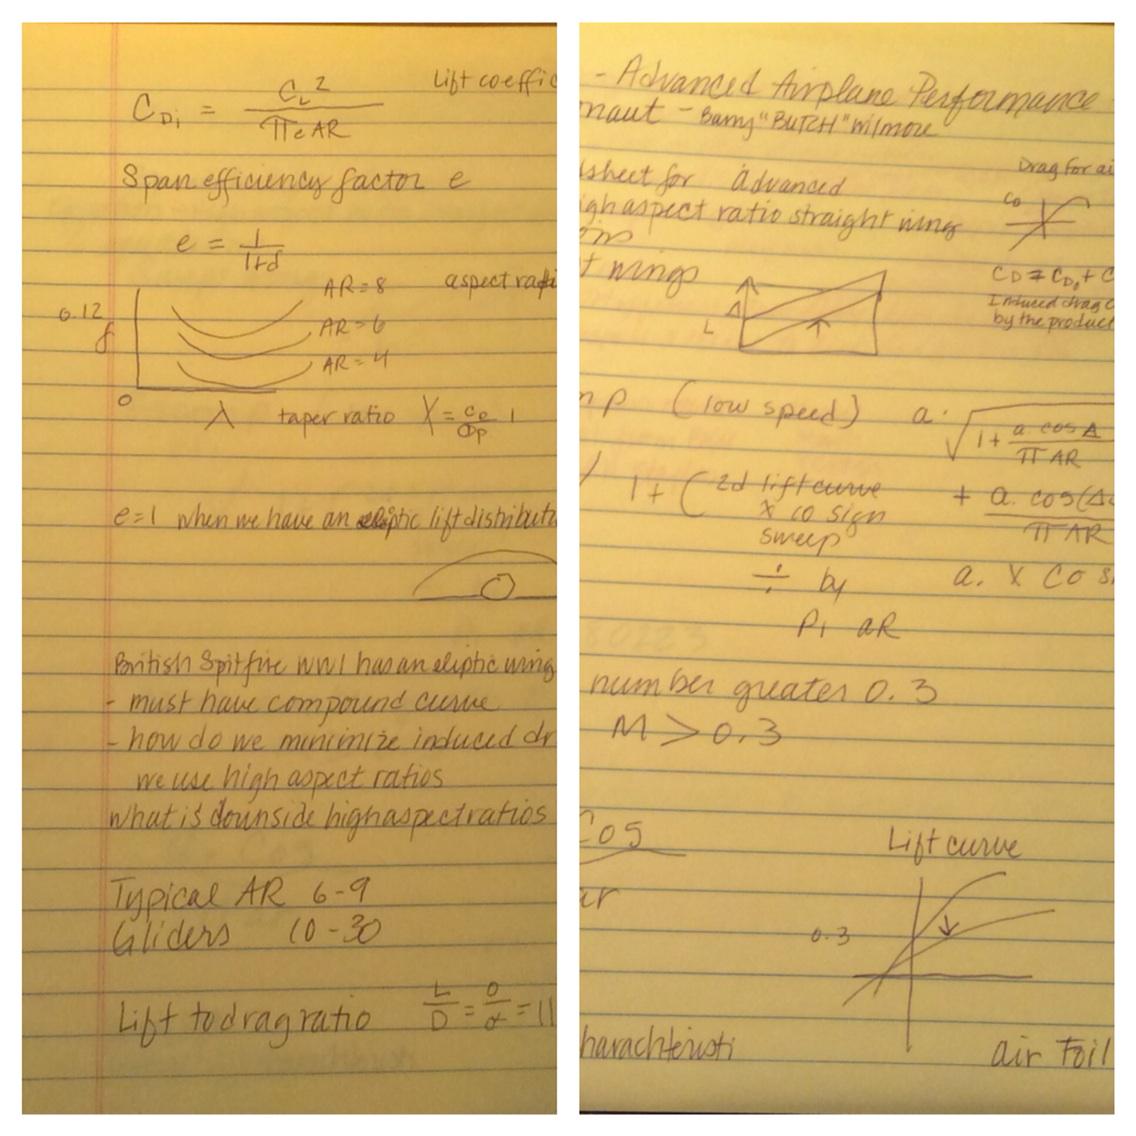 Lift coeffic
C_Di = C_L² / πeAR
Span efficiency factor e
e = 1 / 1+δ
AR=8
aspect rati
0.12
AR=6
AR=4
0
λ taper ratio
1
e=1 when we have an eliptic lift distributi
British Spitfire WW1 has an eliptic wing
- must have compound curve
- how do we minimize induced dr
we use high aspect ratios
what is downside high aspect ratios
Typical AR 6-9
Gliders 10-30
Lift to drag ratio L/D =
- Advanced Airplane Performance
naut - Barry "BUTCH" Wilmore
Drag for ai
dsheet for advanced
igh aspect ratio straight wing
t wings
C_D = C_D0 + C
Induced drag c
by the product
L
mp (low speed) a.
√1 + a. cos Δ / π AR
1 + ( 2d lift curve
x co sign
sweep
+ a. cos(Δ / π AR
÷ by
a. x cos
Pi aR
number greater 0.3
M > 0.3
Cos
ar
Lift curve
0.3
harachteristi
air Foil